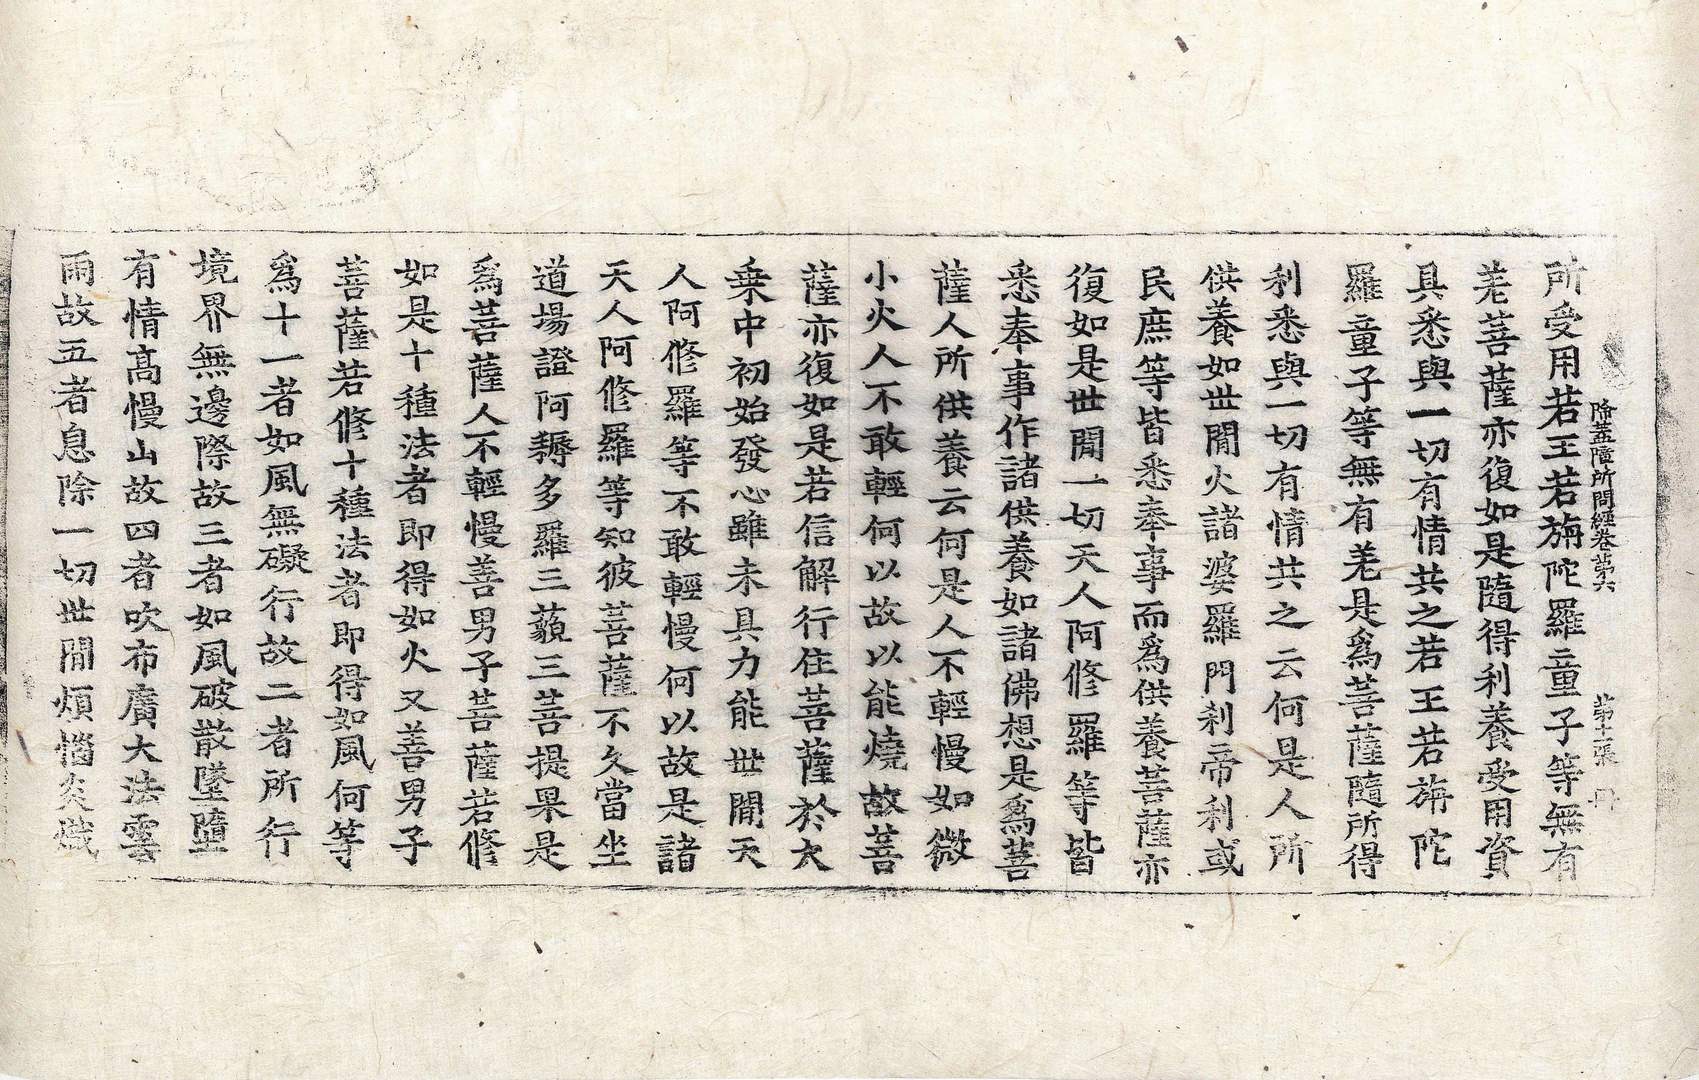 除蓋障所問經卷第六　第十二張　冊
所受用若王若旃陀羅童子等無有
差菩薩亦復如是隨得利養受用資
具悉與一切有情共之若王若旃陀
羅童子等無有差是爲菩薩隨所得
利悉與一切有情共之云何是人所
供養如世閒火諸婆羅門刹帝利或
民庶等皆悉奉事而爲供養菩薩亦
復如是世閒一切天人阿修羅等皆
悉奉事作諸供養如諸佛想是爲菩
薩人所供養云何是人不輕慢如微
小火人不敢輕何以故以能燒故菩
薩亦復如是若信解行住菩薩於大
乗中初始發心雖未具力能世間天
人阿修羅等不敢輕慢何以故是諸
天人阿修羅等知彼菩薩不久當坐
道場證阿耨多羅三藐三菩提果是
爲菩薩人不輕慢善男子菩薩若修
如是十種法者即得如火又善男子
菩薩若修十種法者即得如風何等
爲十一者如風無礙行故二者所行
境界無邊際故三者如風破散墜墮
有情高慢山故四者吹布廣大法雲
雨故五者息除一切世閒煩惱炎熾